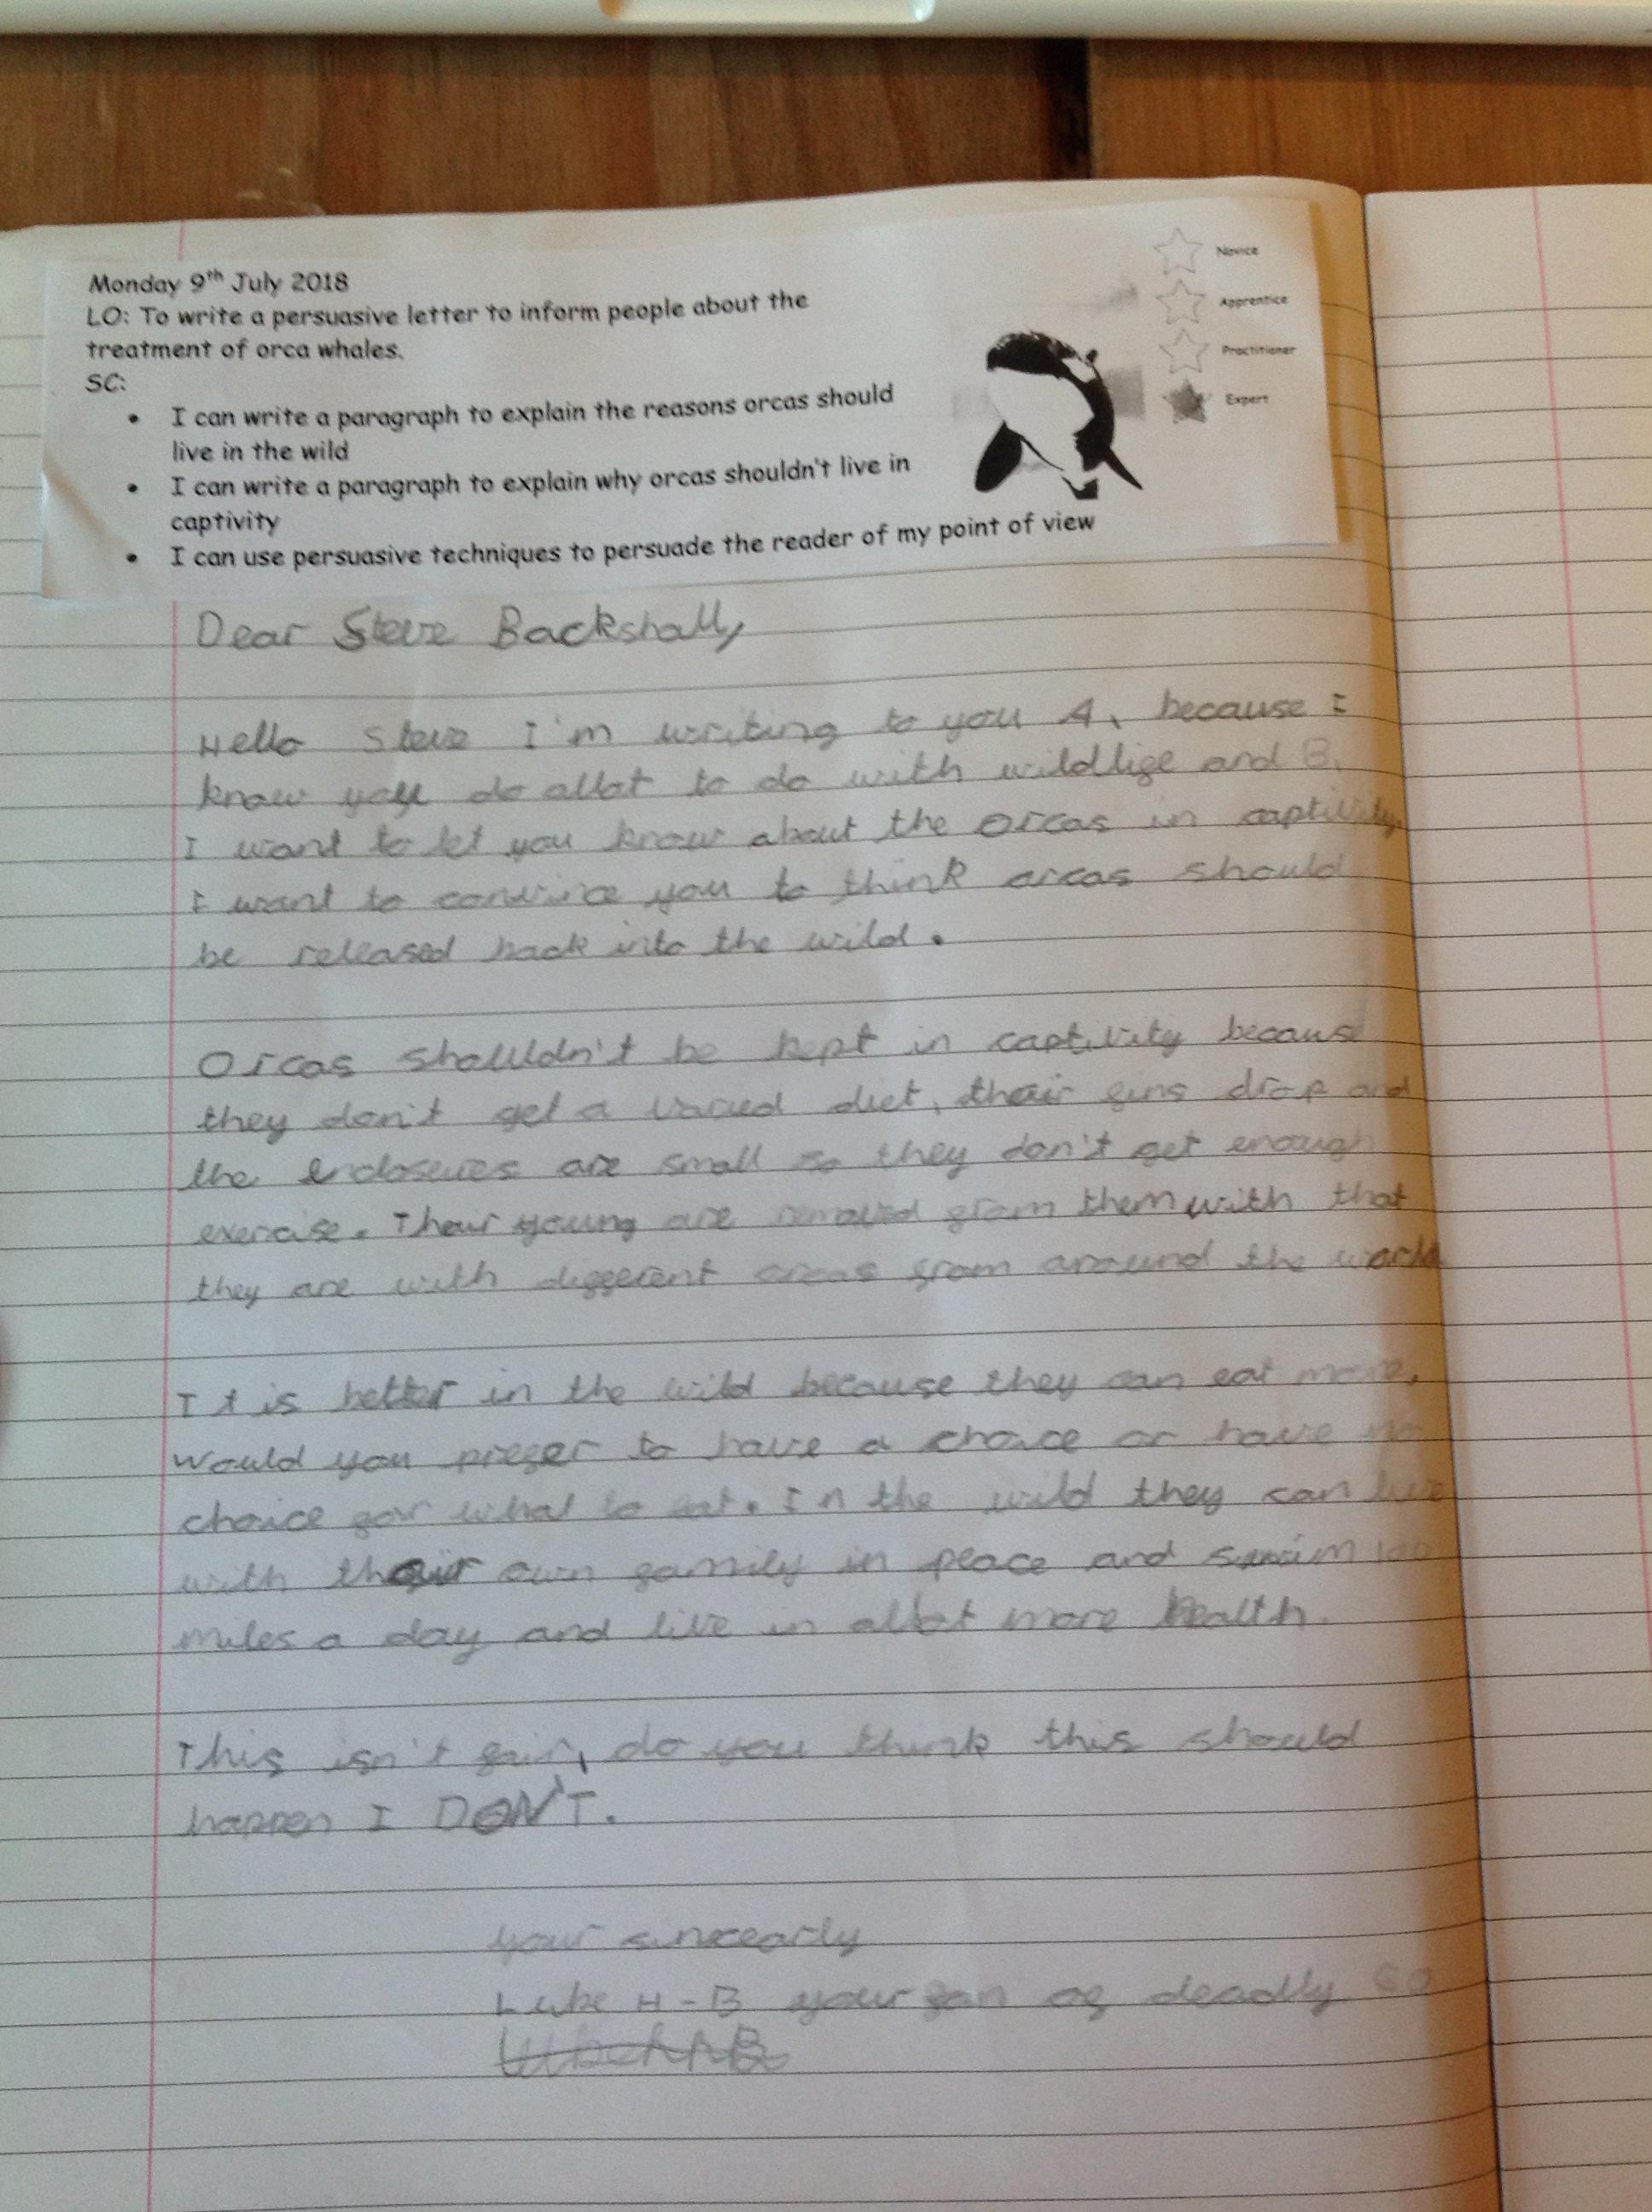 Monday 9th July 2018
LO: To write a persuasive letter to inform people about the
treatment of orca whales.
SC:
• I can write a paragraph to explain the reasons orcas should
live in the wild
• I can write a paragraph to explain why orcas shouldn't live in
captivity
• I can use persuasive techniques to persuade the reader of my point of view
Novice
Apprentice
Practitioner
Expert
Dear Steve Backshall,
Hello Steve I'm writing to you A, because I
know you do allot to do with wildlife and B,
I want to let you know about the orcas in captivity.
I want to convince you to think orcas should
be released back into the wild.
Orcas shouldn't be kept in captivity because
they don't get a varied diet, their fins drop and
the enclosures are small so they don't get enough
exercise. Their young are removed from them with that
they are with different orcas from around the world
It is better in the wild because they can eat more.
Would you prefer to have a choice or have no
choice for what to eat. In the wild they can live
with their own family in peace and swim 100
miles a day and live in allot more health.
This isn't fair, do you think this should
happen I DON'T.
your sincearly
Luke H-B your fan of deadly 60